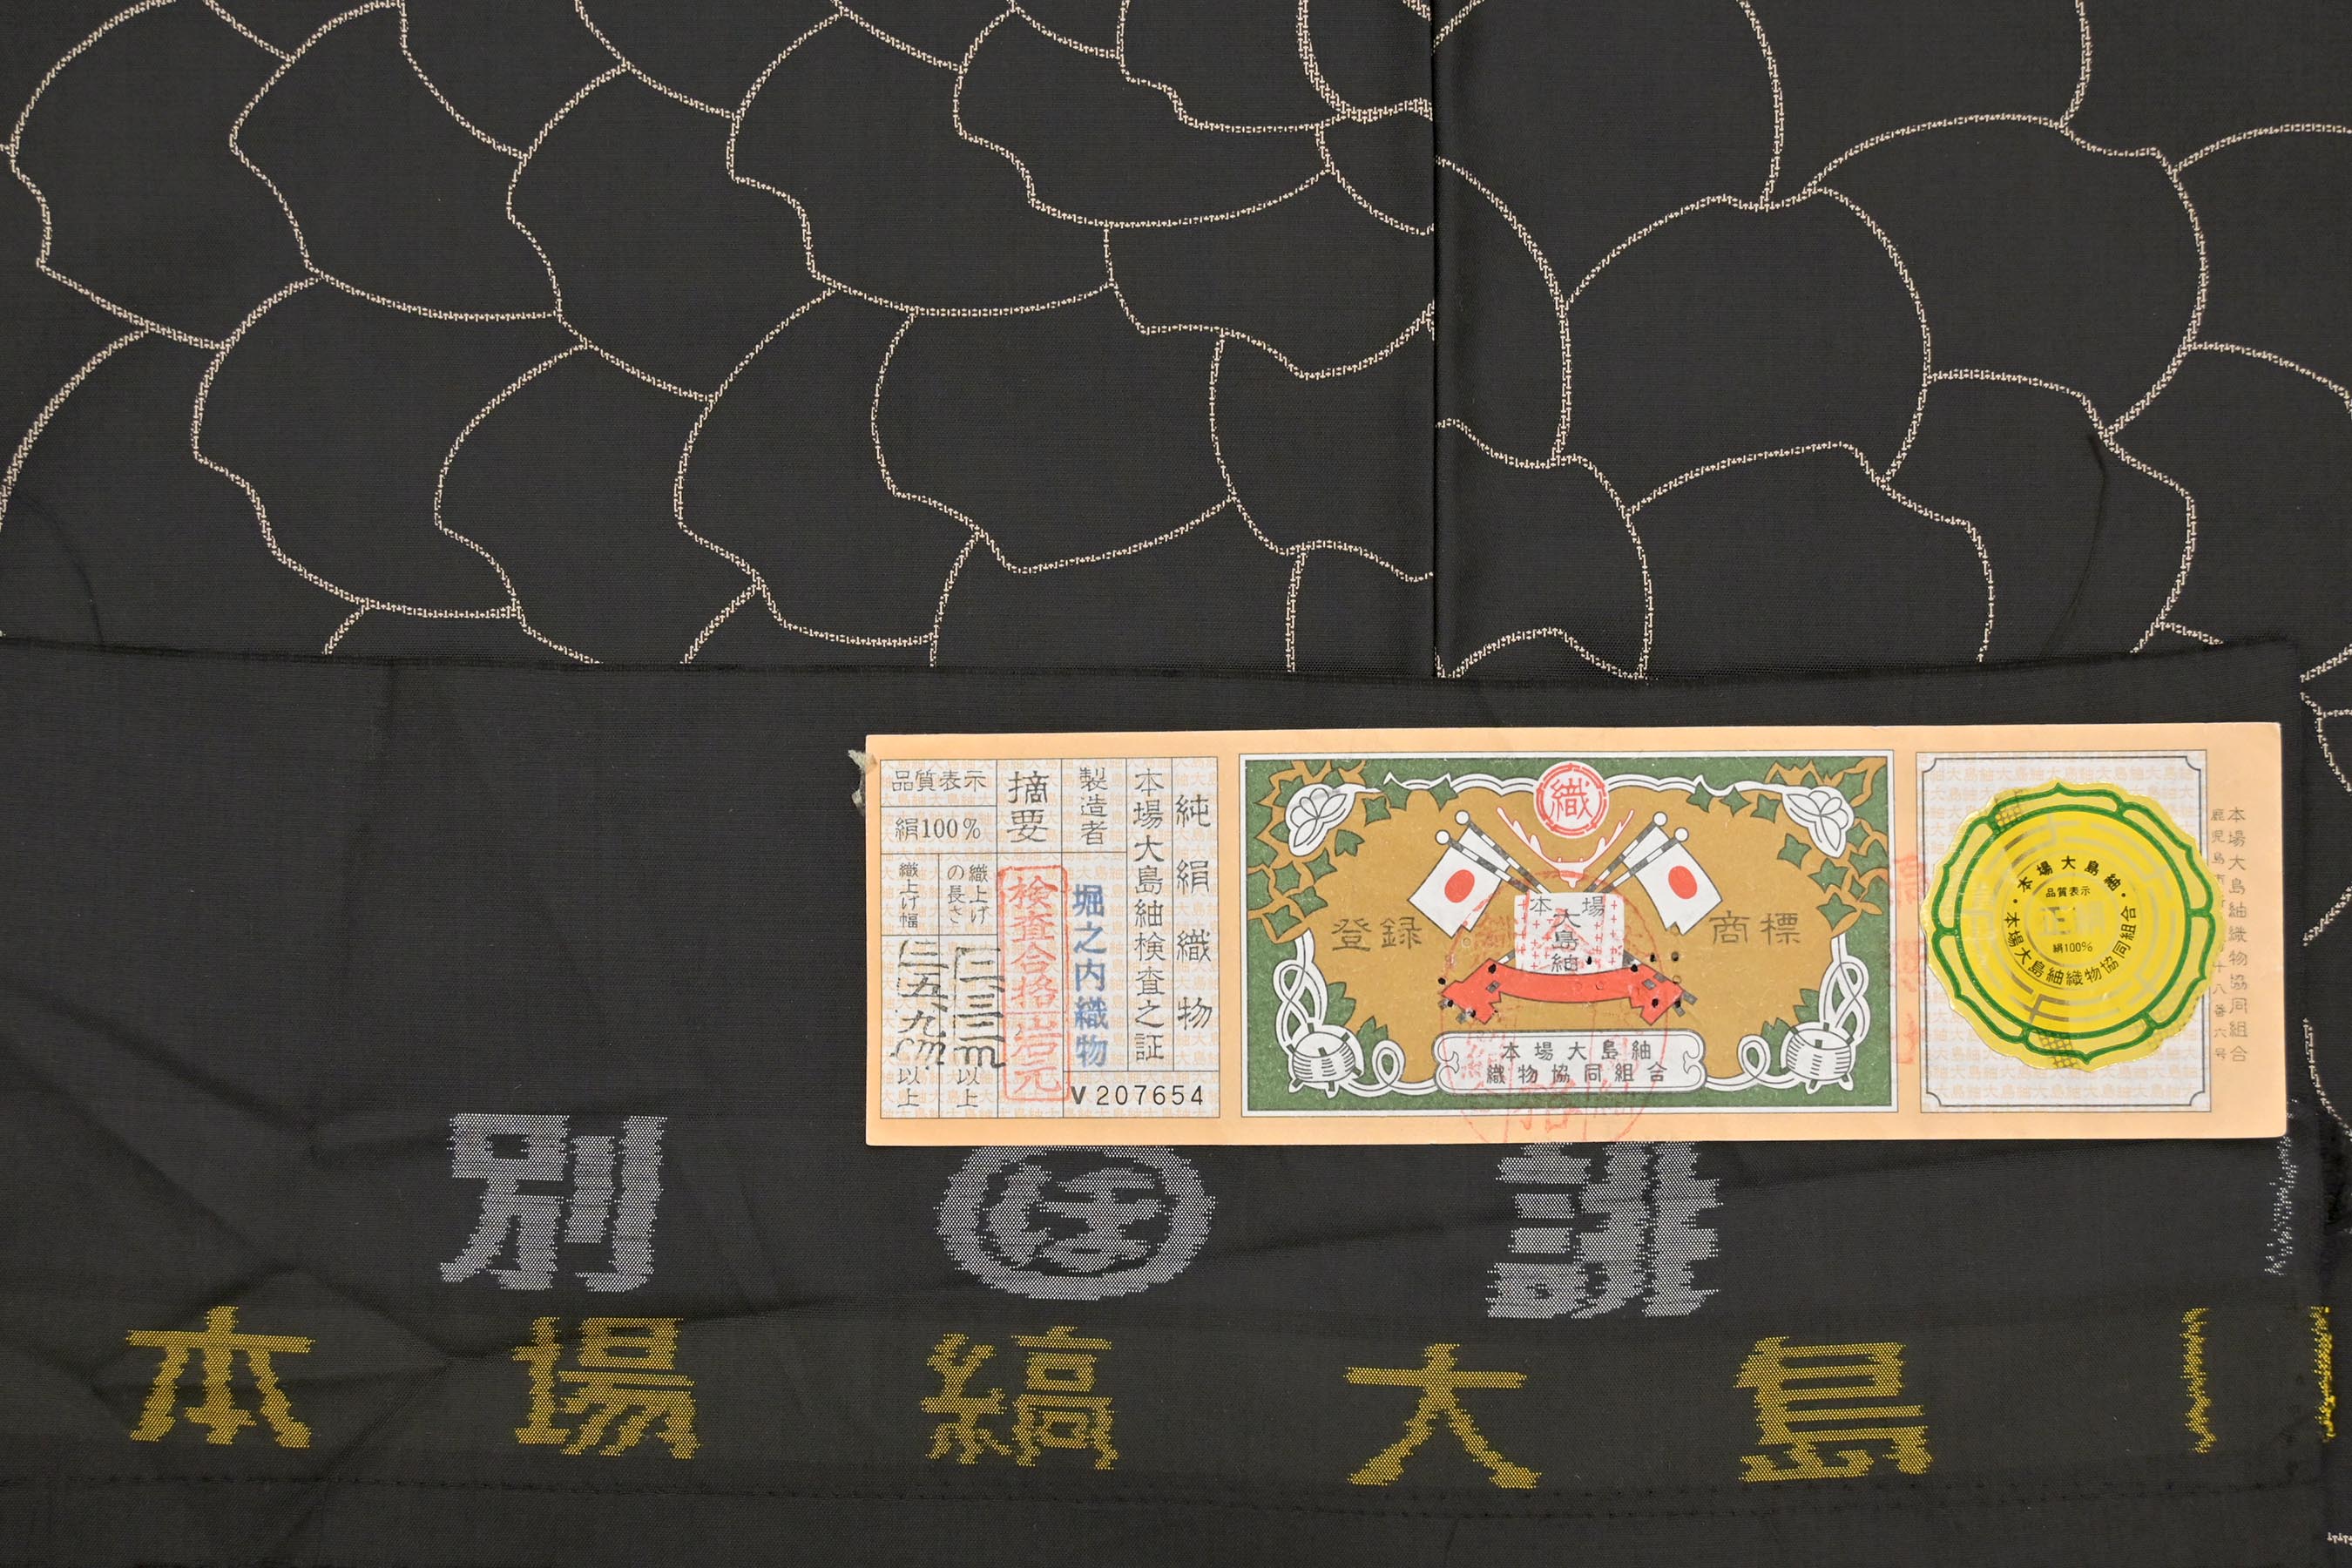 純絹織物
本場大島紬検査之証
製造者
堀之内織物
V207654
摘要
検査合格
品質表示
絹100%
織上げの長さ
一三、三m以上
織上げ幅
三五、九cm以上
織
登録
商標
本場
大島紬
本場大島紬
織物協同組合
本場大島紬
品質表示
絹100%
本場大島紬織物協同組合
本場大島紬織物協同組合
別 誂
本場縞大島